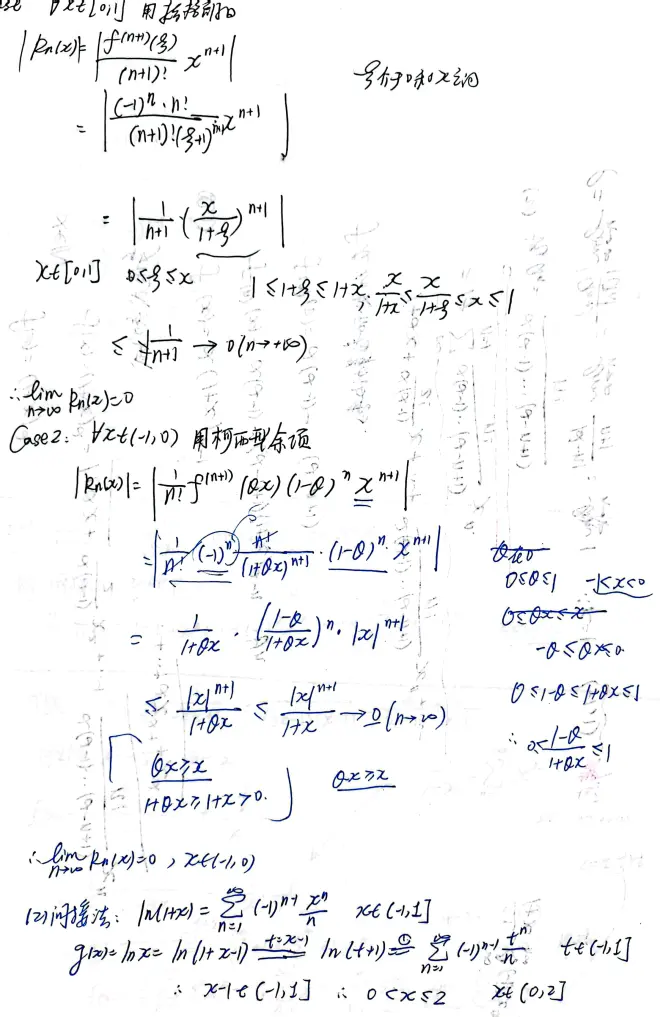 ∀x∈[0,1] 用
|Rn(x)|=|f^(n+1)(ξ)/(n+1)! x^(n+1)| ξ介于0和x之间
= |(-1)^n·n!/((n+1)!(ξ+1)^(n+1)) x^(n+1)|
= |1/(n+1)·(x/(1+ξ))^(n+1)|
x∈[0,1] 0≤ξ≤x 1≤1+ξ≤1+x, x/(1+x)≤x/(1+ξ)≤x≤1
≤ 1/(n+1) → 0(n→+∞)
∴ lim n→∞ Rn(x)=0
Case2: ∀x∈(-1,0) 用柯西型余项
|Rn(x)|=|1/n! f^(n+1)(θx)(1-θ)^n x^(n+1)|
=|1/n! (-1)^n n!/(1+θx)^(n+1)·(1-θ)^n·x^(n+1)|
0≤θ≤1 -1<x<0
0≤θx≤x
= 1/(1+θx)·((1-θ)/(1+θx))^n·|x|^(n+1)
-θ≤θx≤0
≤ |x|^(n+1)/(1+θx) ≤ |x|^(n+1)/(1+x) → 0(n→∞) 0≤1-θ≤1+θx≤1
∴ 0≤(1-θ)/(1+θx)≤1
θx≥x θx≥x
1+θx≥1+x>0.
∴ lim n→∞ Rn(x)=0, x∈(-1,0)
(2)间接法: ln(1+x)=∑_{n=1}^{+∞}(-1)^(n-1) x^n/n x∈(-1,1]
g(x)=lnx=ln(1+x-1) t=x-1 ln(t+1) ① = ∑_{n=1}^{+∞}(-1)^(n-1) t^n/n t∈(-1,1]
∴ x-1∈(-1,1] ∴ 0<x≤2 x∈(0,2]